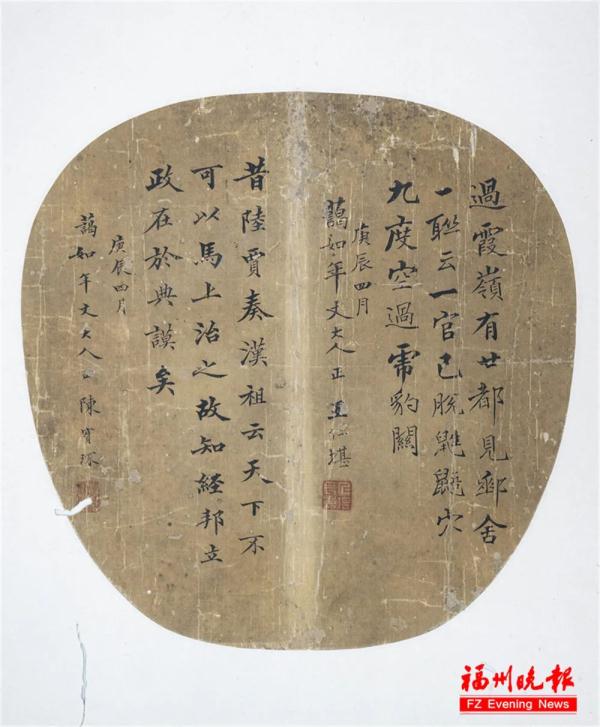 過霞嶺有廿都見郵舍
一聯云一官已脫鼪鼯穴
九度空過虎豹關
庚辰四月
藹如年丈大人正 王仁堪
昔陸賈奏漢祖云天下不
可以馬上治之故知經邦立
政在於典謨矣
庚辰四月
藹如年丈大人 陳寶琛
福州晚報
FZ Evening News